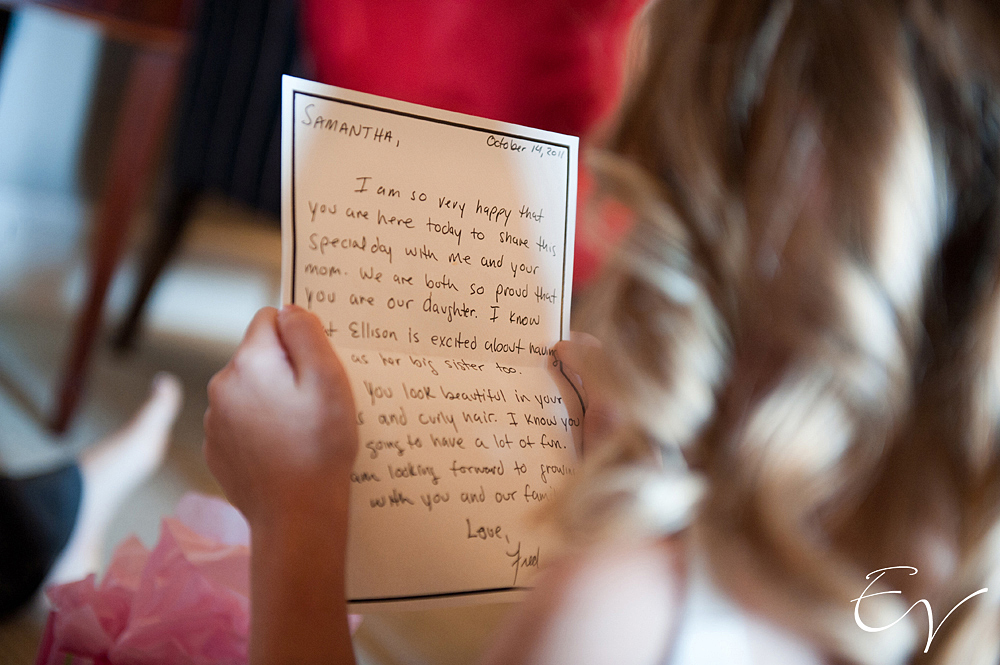 SAMANTHA,
October 14, 2011
I am so very happy that
you are here today to share this
special day with me and your
mom. We are both so proud that
you are our daughter. I know
Ellison is excited about having
as her big sister too.
You look beautiful in your
and curly hair. I know you
going to have a lot of fun.
am looking forward to
with you and our
Love,
Fred
EV